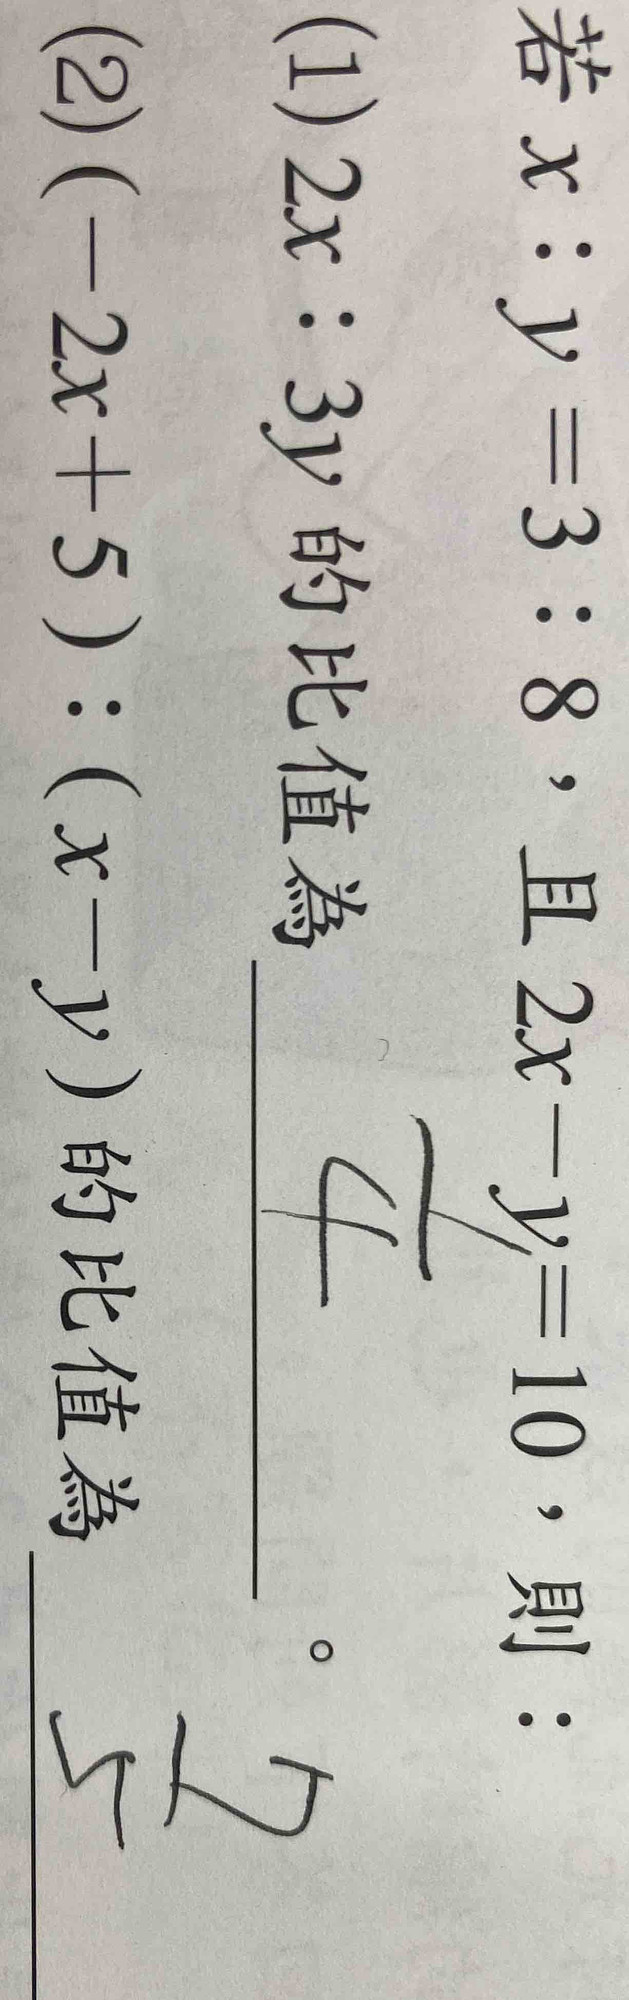 若 x：y＝3：8，且 2x－y＝10，則：
(1) 2x：3y 的比值為 1/4 。
(2) (－2x＋5)：(x－y) 的比值為 7/5